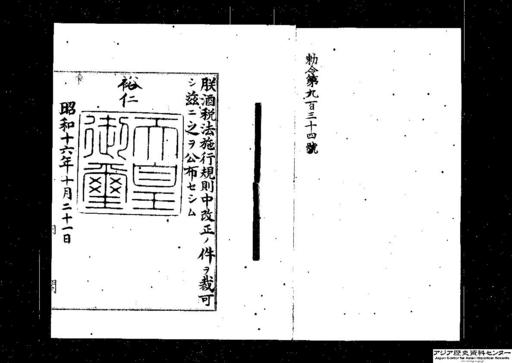 勅令第九百三十四號
朕酒税法施行規則中改正ノ件ヲ裁可
シ茲ニ之ヲ公布セシム
裕仁
天皇
御璽
昭和十六年十月二十一日
アジア歴史資料センター
Japan Center for Asian Historical Records